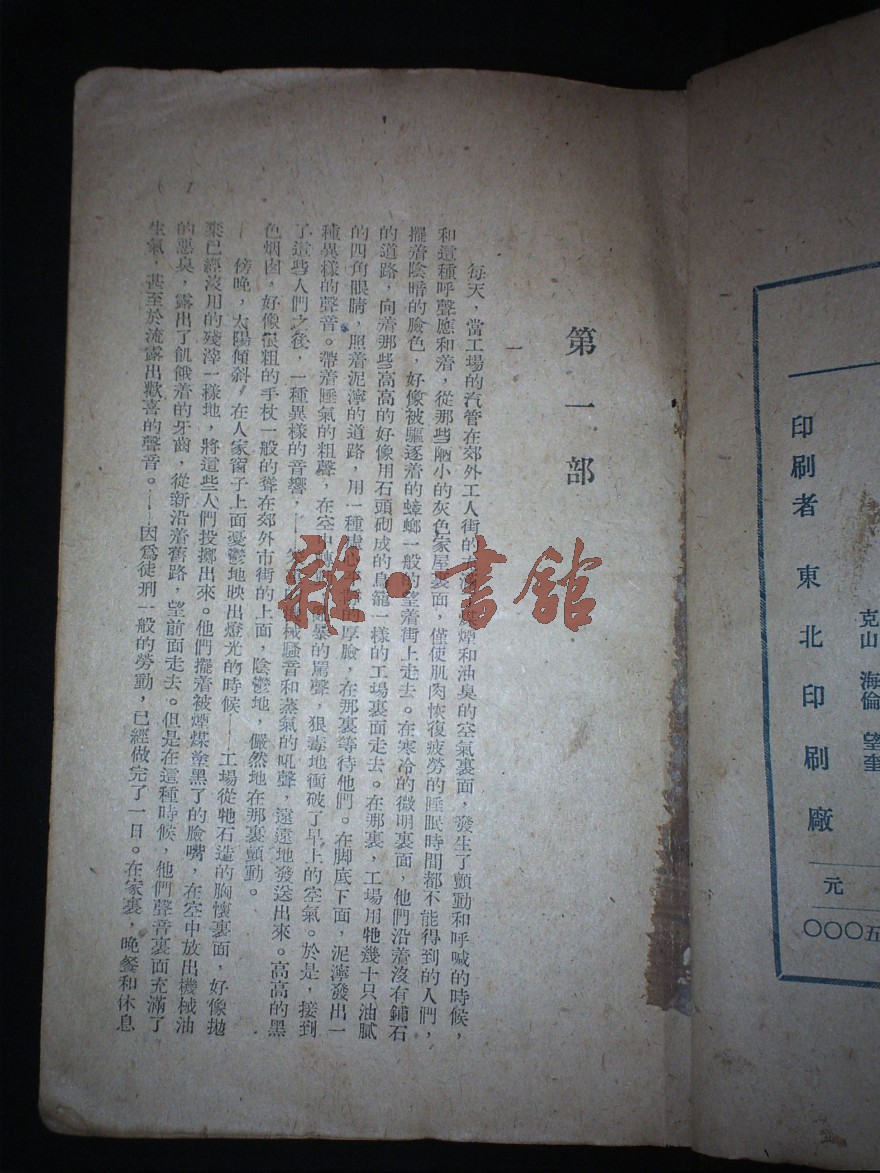 印刷者 東北印刷廠
克山 海倫 望奎
元
〇〇〇五
第一部
一
每天，當工場的汽管在郊外工人街的煙和油臭的空氣裏面，發生了顫動和呼喊的時候，
和這種呼聲應和着，從那些陋小的灰色家屋裏面，僅使肌肉恢復疲勞的睡眠時間都不能得到的人們，
擺着陰暗的臉色，好像被驅逐着的蟑螂一般的望着街上走去。在寒冷的微明裏面，他們沿着沒有鋪石
的道路，向着那些高高的好像用石頭砌成的鳥籠一樣的工場裏面走去。在那裏，工場用牠幾十只油膩
的四角眼睛，照着泥濘的道路，用一種的厚臉，在那裏等待他們。在脚底下面，泥濘發出一
種異樣的聲音。帶着睡氣的粗聲，在空中暴的罵聲，狠毒地衝破了早上的空氣。於是，接到
了這些人們之後，一種異樣的音響，——械騷音和蒸氣的吼聲，遠遠地發送出來。高高的黑
色烟囱，好像很粗的手杖一般的聳在郊外市街的上面，陰鬱地，儼然地在那裏顫動。
傍晚，太陽傾斜，在人家窗子上面憂鬱地映出燈光的時候——工場從牠石造的胸懷裏面，好像拋
棄已經沒用的殘滓一樣地，將這些人們投擲出來。他們擺着被煙煤塗黑了的臉嘴，在空中放出機械油
的惡臭，露出了飢餓着的牙齒，從新沿着舊路，望前面走去。但是在這種時候，他們聲音裏面充滿了
生氣，甚至於流露出歡喜的聲音。——因爲徒刑一般的勞動，已經做完了一日。在家裏，晚餐和休息
( 1
雜·書館